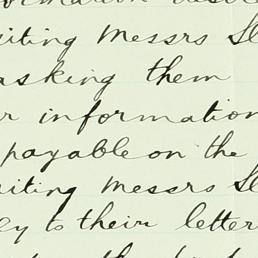 iting Messrs
asking them
r information
payable on the
iting Messrs
ey to their letter